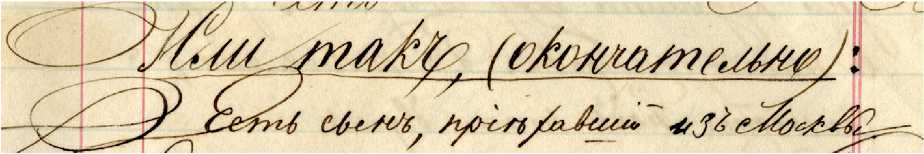 Или такъ, (окончательно):
Есть сынъ, пріѣхавшій изъ Москвы